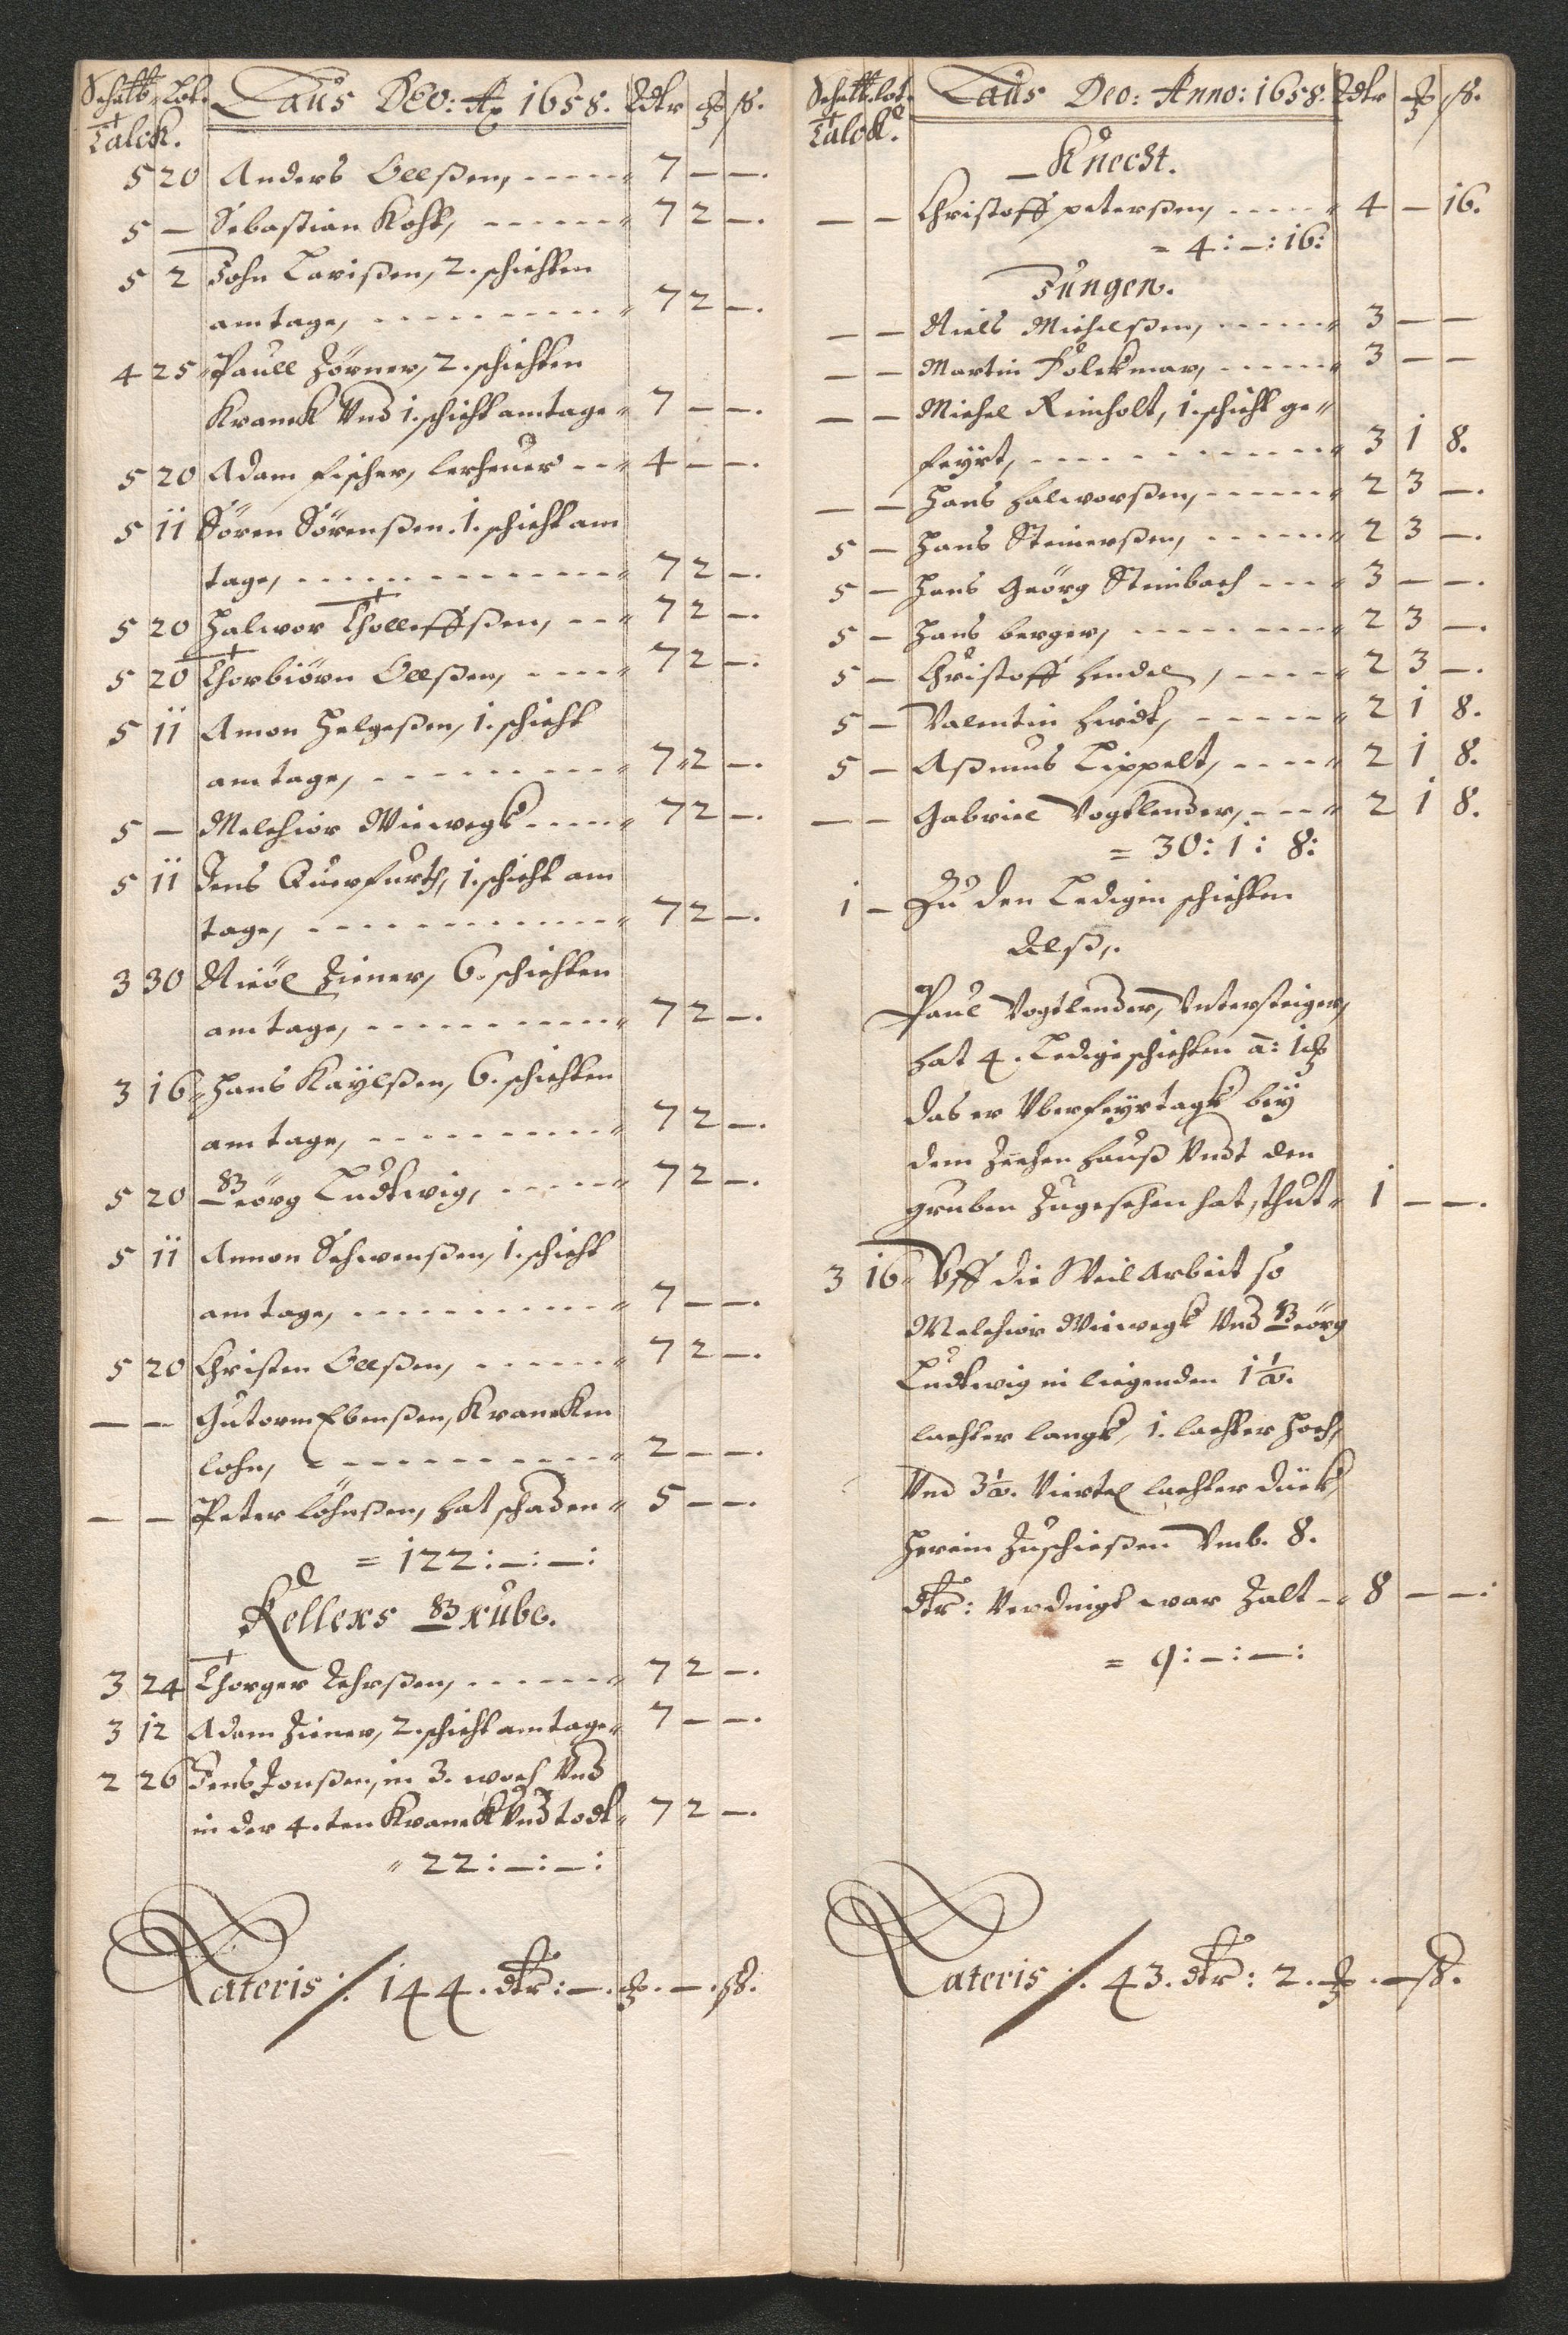 Schℓtt: Lot. Laus Deo: Ao 1658. Rdtr ℳ ß.
Talck.
5 20 Anders Ollßen, 7 — —.
5 — Sebastian Koht, 7 2 —.
5 2 John Larißen, 2. schichten
am tage, 7 2 —.
4 25 Paull Zörner, 2. schichten
Kranck Und 1. schicht am tage 7 — —.
5 20 Adam Fischer, lerheuer 4 — —.
5 11 Sören Sörenßen. 1. schicht am
tage, 7 2 —.
5 20 Halwor Tholleffßen, 7 2 —.
5 20 Thorbiörn Ollßen, 7 2 —.
5 11 Amon Helgeßen, 1. schicht
am tage, 7 2 —.
5 — Melchior Wiewegk 7 2 —.
5 11 Jens Querfurth, 1. schicht am
tage, 7 2 —.
3 30 Nicöl Ziener, 6. schichten
am tage, 7 2 —.
3 16 Hans Kaÿlßen, 6. schichten
am tage, 7 2 —.
5 20 Geörg Ludtwig, 7 2 —.
5 11 Ammon Schwenßen, 1. schicht
am tage, 7 — —.
5 20 Christen Ollßen, 7 2 —.
— — Gutorm Ebenßen, Krancken
lohn, 2 — —.
— — Peter Löhnßen, hat schaden 5 — —.
= 122: —: —:
Kellers Grube.
3 24 Thorger Lehrßen, 7 2 —.
3 12 Adam Ziener, 2. schicht am tage 7 — —.
2 26 Jens Jonßen, in 3. woch Und
in der 4.ten Kranck Und todt 7 2 —.
22: —: —:
Lateris /. 144. dtr: —. ℳ. —. ß.
Schℓtt: lot. Laus Deo: Anno: 1658. Rdtr ℳ ß.
Talck.
Knecht.
— — Christoff peterßen, 4 — 16.
= 4: —: 16:
Jungen.
— — Niels Michelßen, 3 — —
— — Martin Folckmar, 3 — —
— — Michel Reinholt, 1. schicht ge-
feyrt, 3 1 8.
— — Hans Halworßen, 2 3 —.
5 — Hans Steinerßen, 2 3 —.
5 — Hans Geörg Steinbach 3 — —.
5 — Hans berger, 2 3 —.
5 — Christoff hendel, 2 3 —.
5 — Valentin heidt, 2 1 8.
5 — Aßmus Lippelt, 2 1 8.
— — Gabriel Vogtlender, 2 1 8.
= 30: 1: 8:
1 — Zu den Ledigen schichten
Alß,.
Paul Vogtlender, Untersteiger,
hat 4. Ledige schichten a: 1 ℳ
das er Uber feyrtagk beÿ
dem Zechen hauß Undt den
gruben Zugesehen hat, thut 1 — —.
3 16 Uff die Weil Arbeit so
Melchior Wiewegk Und Geörg
Ludtwig in liegenden 1 1/2.
lachter langk, 1. lachter hoch,
Und 3 1/2. Viertel lachter dück,
herein Zuschießen Umb. 8.
dtr: Verdingt war Zalt 8 — —:
= 9: —: —:
Lateris /. 43. dtr: 2. ℳ. — ß.